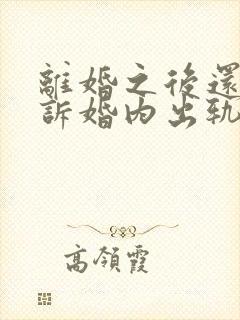 離婚之後還
訴婚內出軌
高領霞